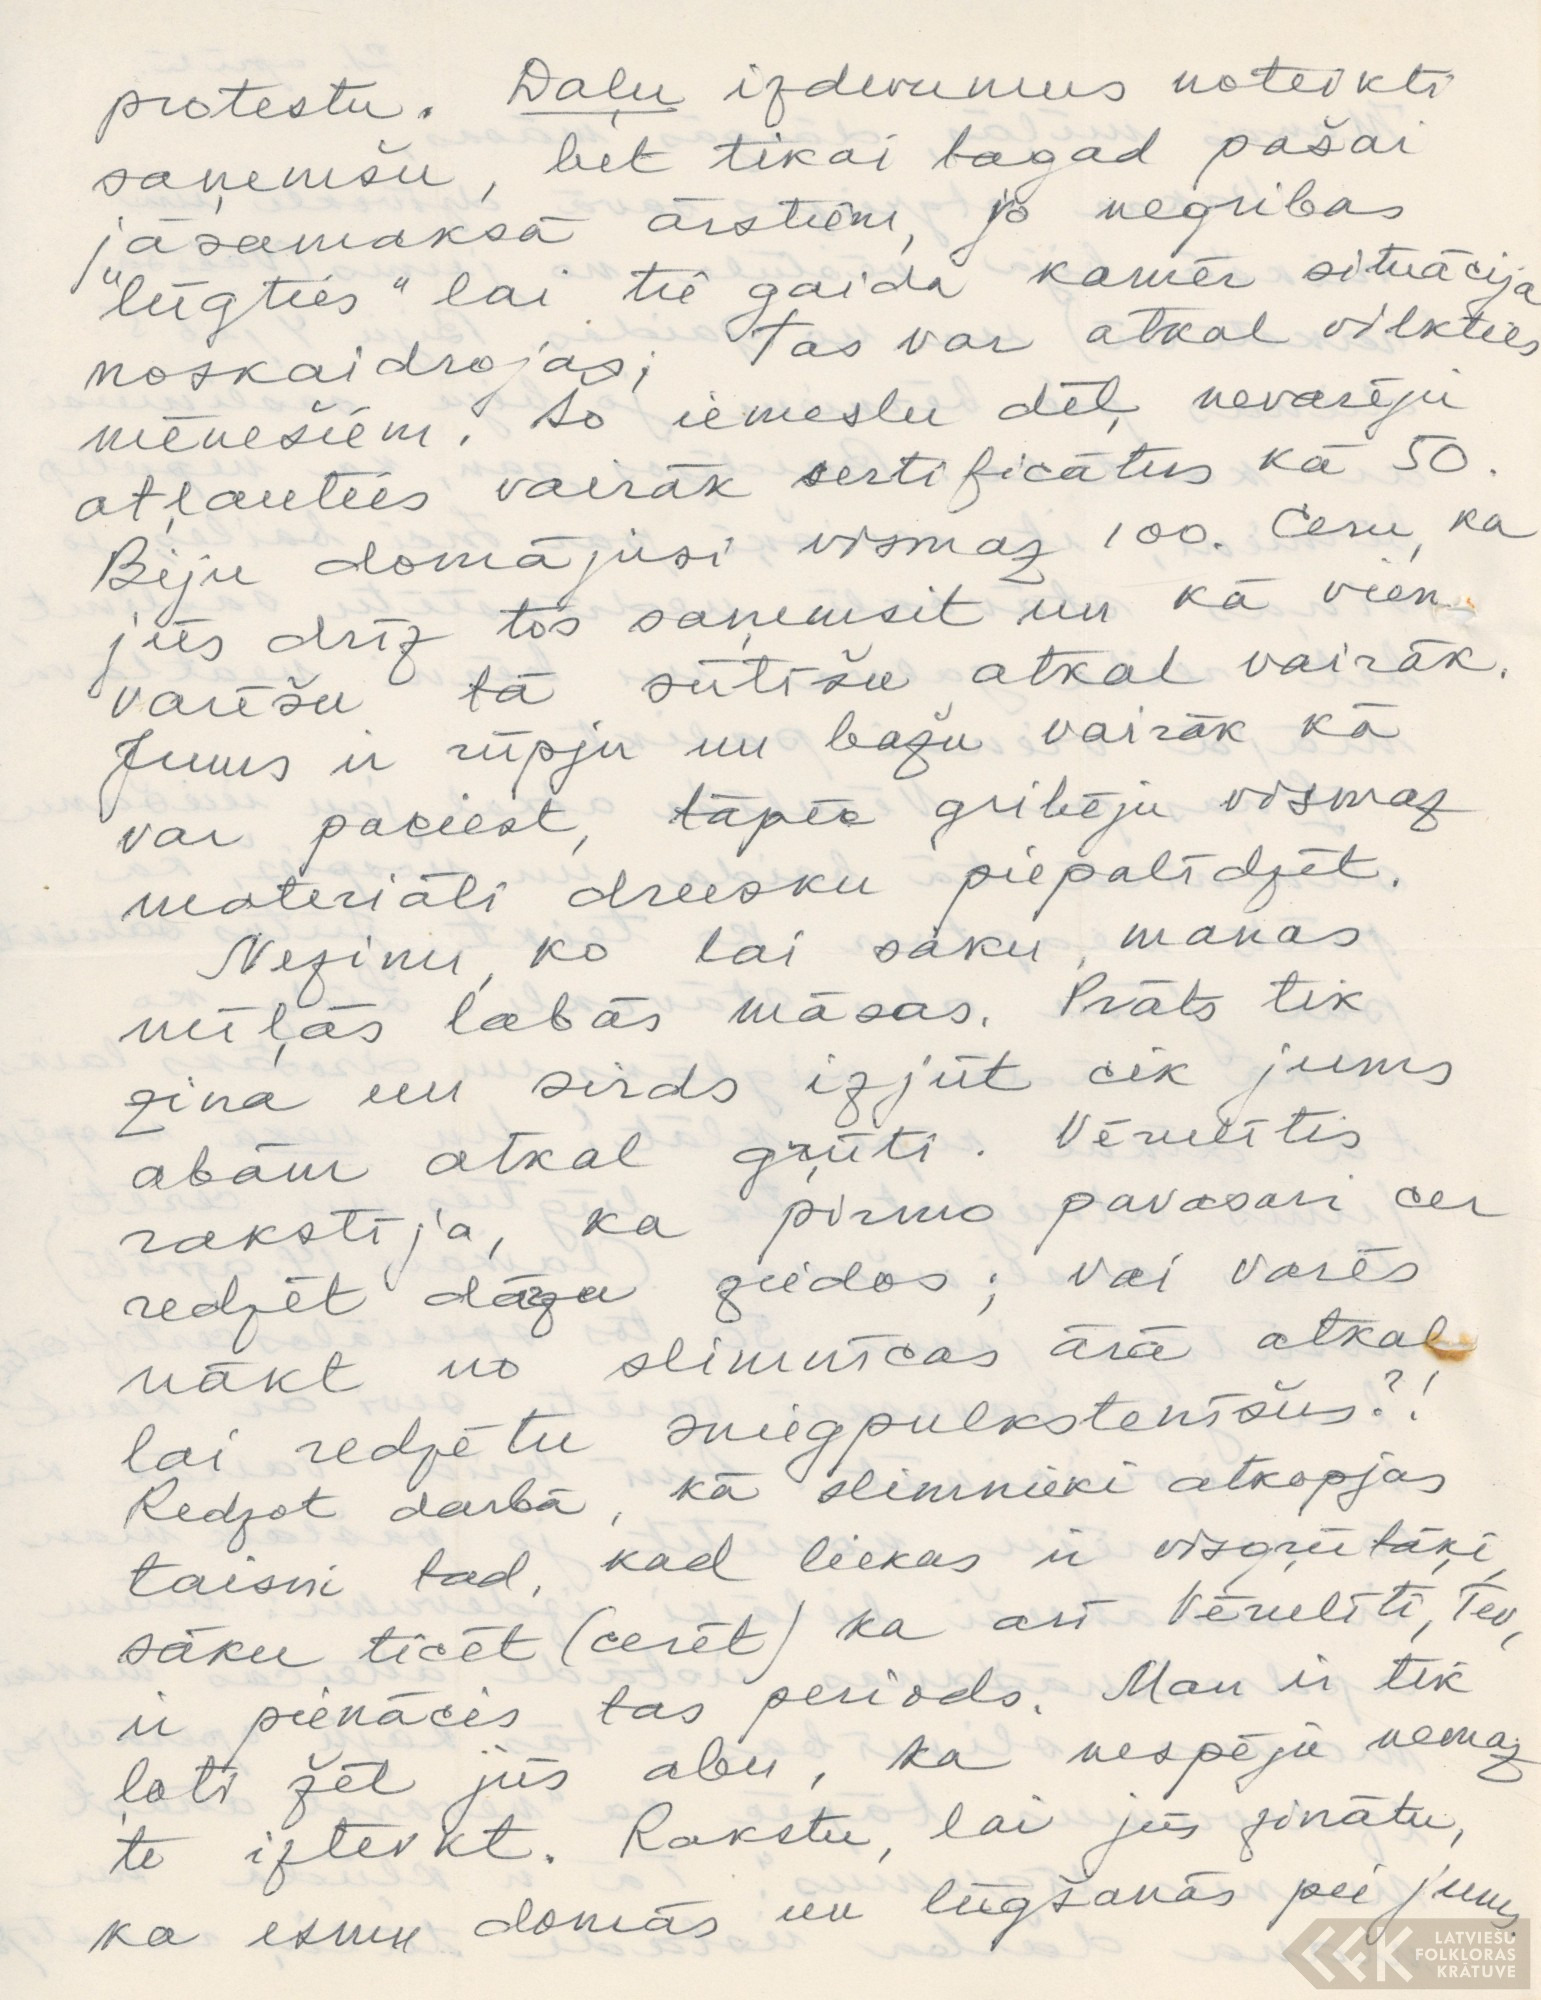 protestu. Daļu izdevumus noteikti
saņemšu, bet tikai tagad pašai
jāsamaksā ārstiem, jo negribas
"lūgties" lai tie gaida kamēr situācija
noskaidrojas; Tas var atkal vilkties
mēnešiem. Šo iemeslu dēļ, nevarēju
atļauties vairāk sertificātus kā 50.
Biju domājusi vismaz 100. Ceru, ka
jūs drīz tos saņemsit un kā vien
varēšu tā sūtīšu atkal vairāk.
Jums ir rūpju un bažu vairāk kā
var paciest, tāpēc gribēju vismaz
materiāli drusku piepalīdzēt.
Nezinu, ko lai saku, manas
mīļās labās māsas. Prāts tik
zina un sirds izjūt cik jums
abām atkal grūti. Vērulītis
rakstīja, ka pirmo pavasari cer
redzēt dārzu ziedos; vai varēs
nākt no slimnīcas ārā atkal
lai redzētu sniegpulkstenīšus?!
Redzot darbā, kā slimnieki atkopjas
taisni tad, kad liekas ir visgrūtāķi,
sāku ticēt (cerēt) ka arī Vērulīti, Tev,
ir pienācis tas periods. Man ir tik
ļoti žēl jūs abu, ka nespēju nemaz
te izteikt. Rakstu, lai jūs zinātu,
ka esmu domās un lūgšanās pie jums.
LATVIEŠU
FOLKLORAS
KRĀTUVE